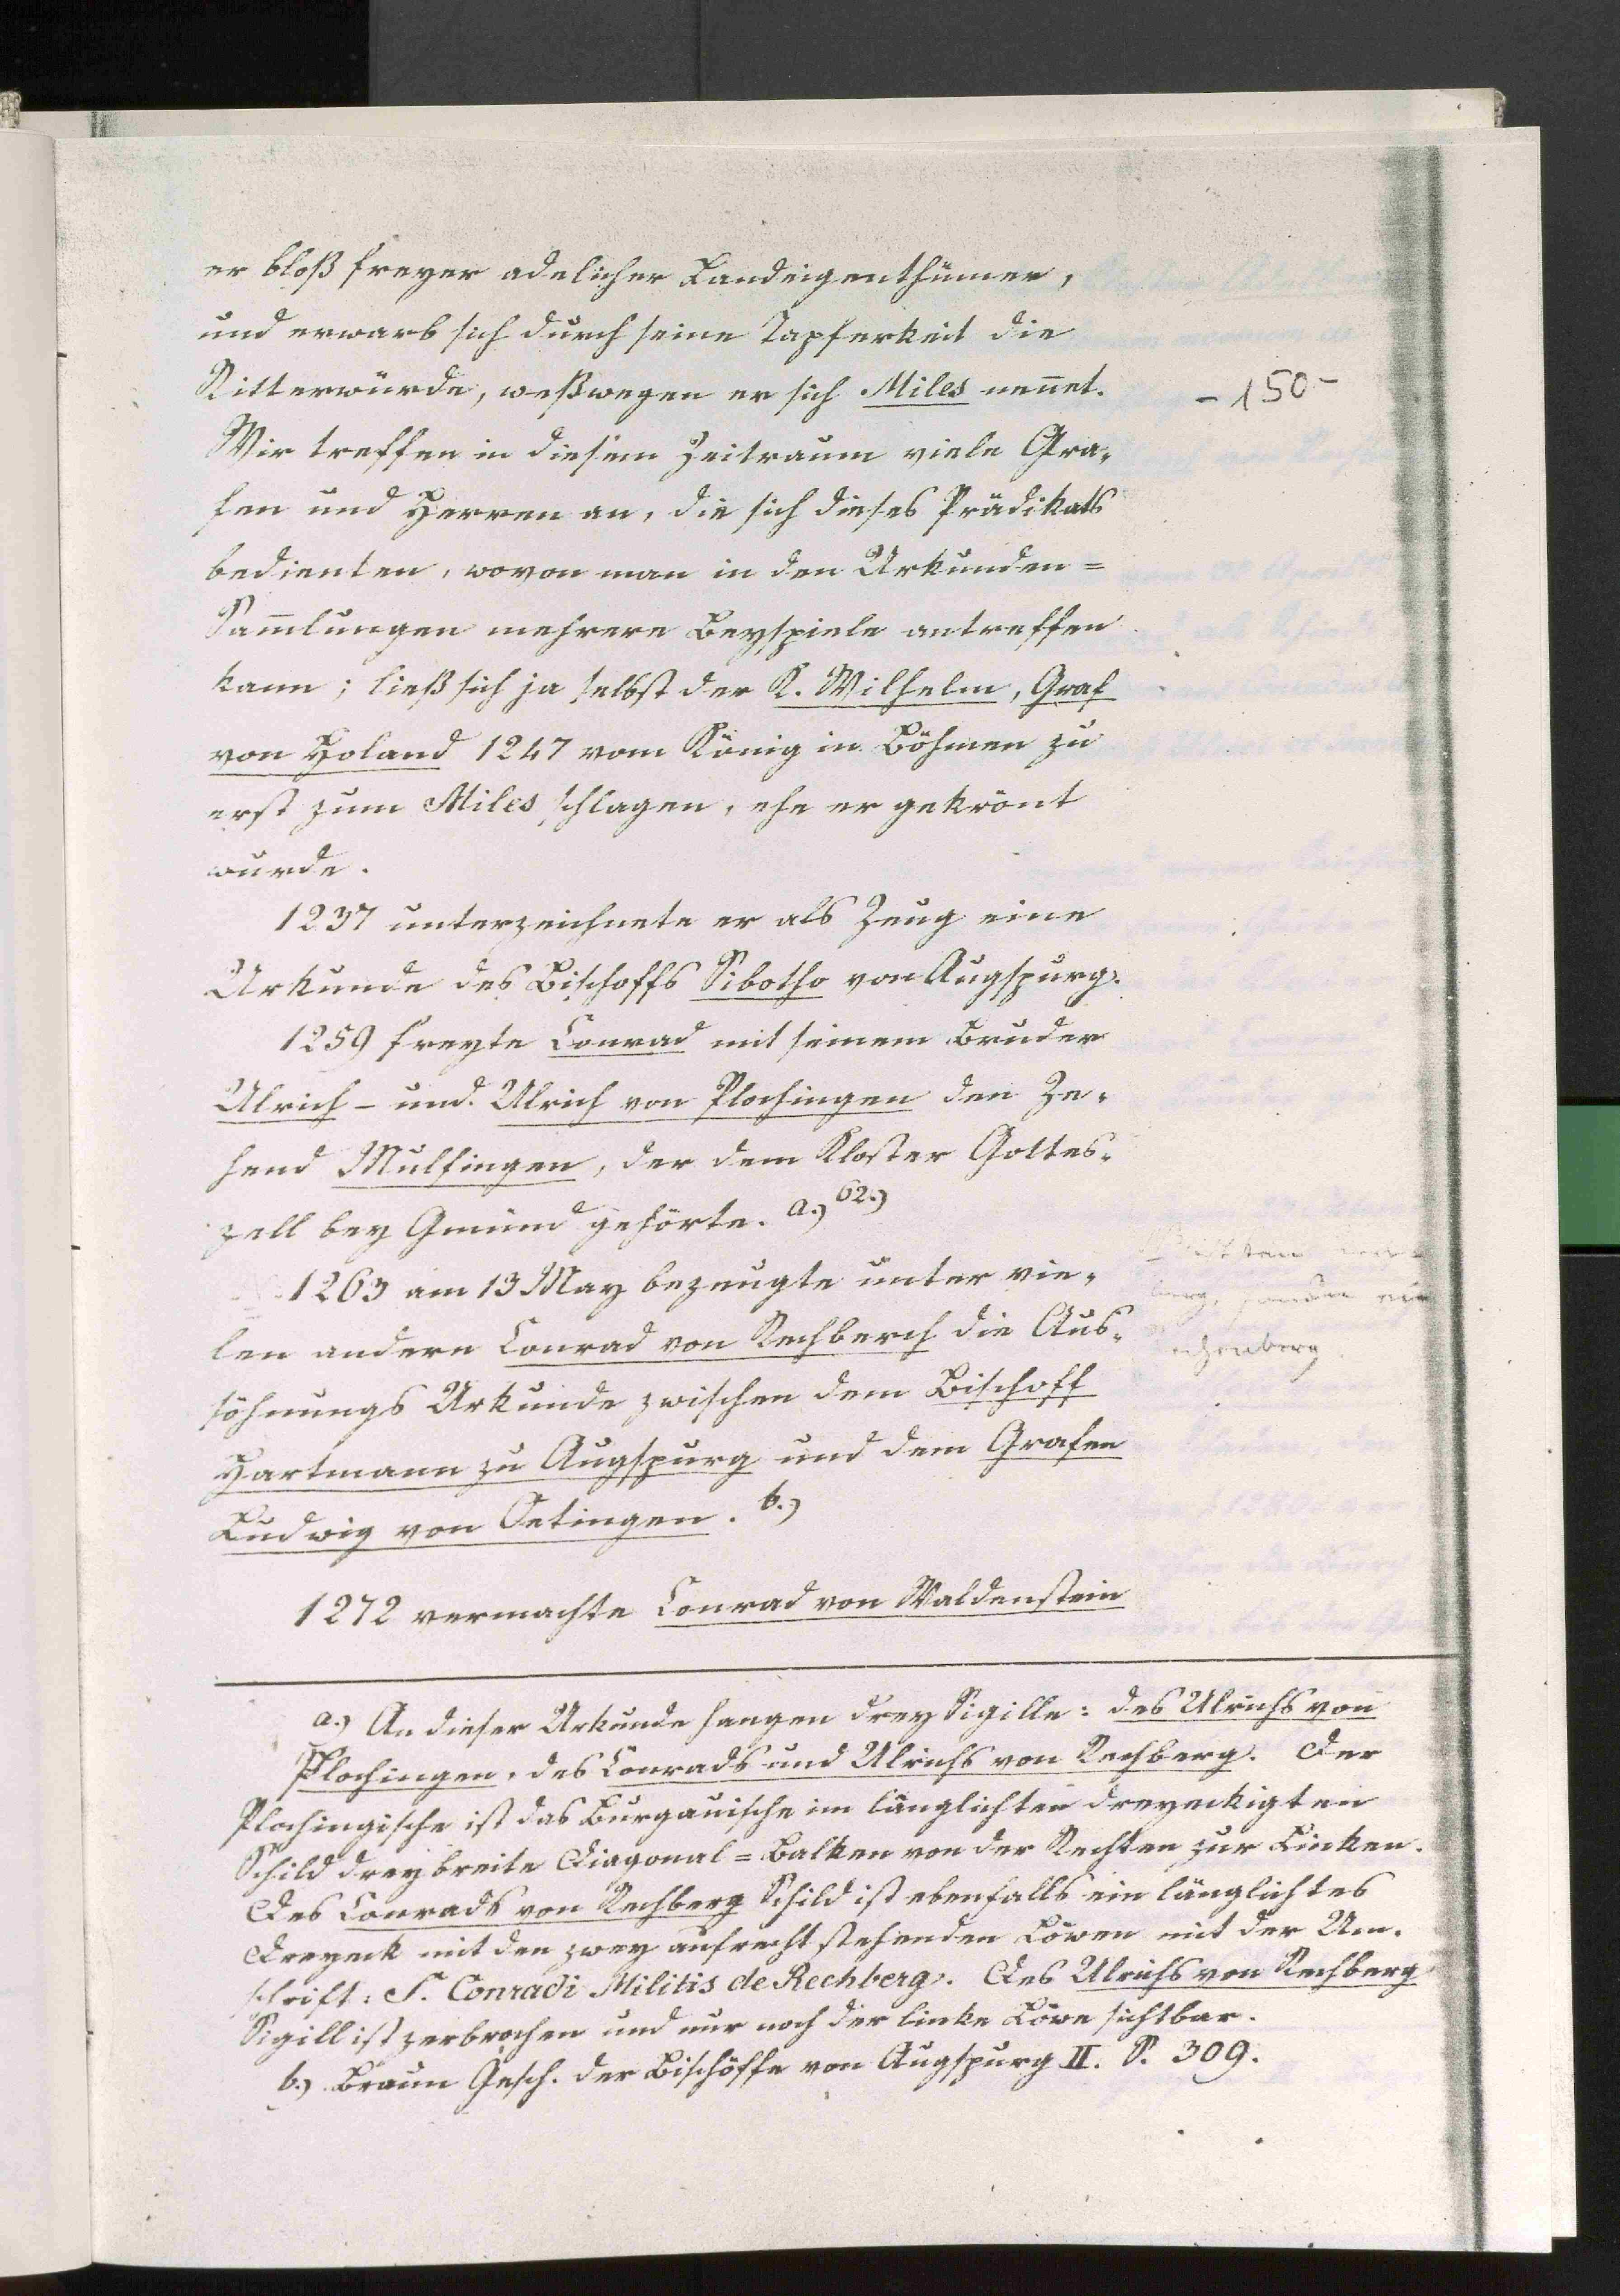 er bloß freyer adelicher Landeigenthümer,
und erwarb sich durch seine Tapferkeit die
Ritterwürde, weßwegen er sich Miles nen̄et.
- 150 -
Wir treffen in diesem Zeitraum viele Gra-
fen und Herren an, die sich dieses Prädikats
bedienten, wovon man in den Urkunden=
Sam̄lungen mehrere Beyspiele antreffen
kann; ließ sich ja selbst der K. Wilhelm, Graf
von Holand 1247 vom König in Böhmen zu
erst zum Miles schlagen, ehe er gekrönt
wurde.
1237 unterzeichnete er als Zeug eine
Urkunde des Bischoffs Sibotho von Augspurg.
1259 freyte Conrad mit seinem Bruder
Ulrich - und Ulrich von Plochingen den Ze-
hend Mulfingen, der dem Kloster Gottes-
zell bey Gmünd gehörte. a.) 62.)
1263 am 13 May bezeugte unter vie-
len andern Conrad von Rechberch die Aus-
söhnungs Urkunde zwischen dem Bischoff
Hartmann zu Augspurg und dem Grafen
Ludwig von Oetingen. b.)
1272 vermachte Conrad von Waldenstein
a.) An dieser Urkunde hangen drey Sigille: des Ulrichs von
Plochingen, des Conrads und Ulrichs von Rechberg. Der
Plochingische ist das Burgauische im länglichten dreyeckigten
Schild drey breite Diagonal=Balken von der Rechten zur Linken.
Des Conrads von Rechberg Schild ist ebenfalls ein länglichtes
Dreyeck mit den zwey aufrecht stehenden Löwen mit der Um-
schrift: S. Conradi Militis de Rechberg. Des Ulrichs von Rechberg
Sigill ist zerbrochen und nur noch der linke Löwe sichtbar.
b.) Braun Gesch. der Bischöffe von Augspurg II. S. 309.